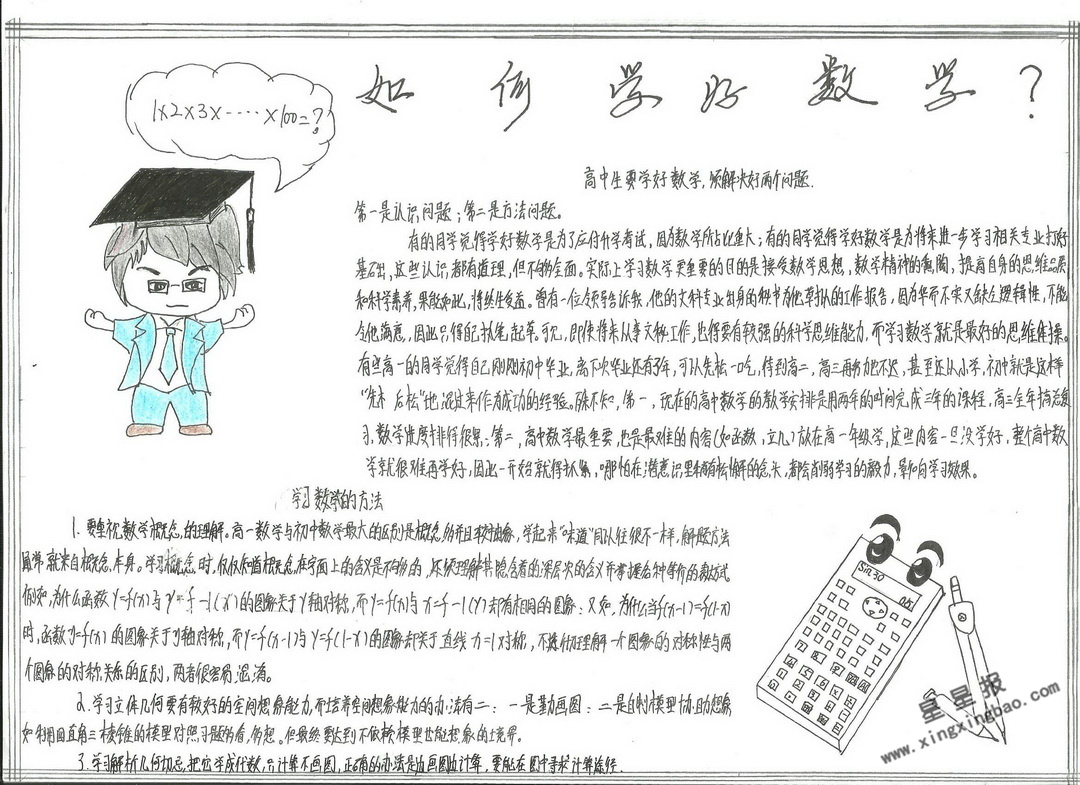 如何学好数学?
1x2x3x·····x100=?
高中生要学好数学,须解决好两个问题.
第一是认识问题;第二是方法问题。
有的同学觉得学好数学是为了应付升学考试,因为数学所占比重大;有的同学觉得学好数学是为将来进一步学习相关专业打好
基础,这些认识都有道理,但不够全面。实际上学习数学更重要的目的是接受数学思想,数学精神的熏陶,提高自身的思维品质
和科学素养,果能如此,将终生受益。曾有一位领导告诉我,他的文科专业出身的秘书为他草拟的工作报告,因为华而不实又缺乏逻辑性,不能
令他满意,因此只得自己执笔起草。可见,即使将来从事文秘工作,也得要有较强的科学思维能力,而学习数学就是最好的思维体操。
有些高一的同学觉得自己刚刚初中毕业,离下次毕业还有3年,可以先松一口气,待到高二,高三再努力也不迟,甚至还以小学,初中就是这样
“先松后紧”地混过来作为成功的经验。殊不知,第一,现在的高中数学的教学安排是用两年的时间完成三年的课程,高三全年搞总复
习,数学进度排得很紧;第二,高中数学最重要,也是最难的内容(如函数,立几)放在高一年级学,这些内容一旦没学好,整个高中数
学就很难再学好,因此一开始就得抓紧,哪怕在潜意识里稍有松懈的念头,都会削弱学习的毅力,影响学习效果。
学习数学的方法
1.要重视数学概念的理解。高一数学与初中数学最大的区别是概念多并且较抽象,学起来“味道”同以往很不一样,解题方法
通常就来自概念本身。学习概念时,仅仅知道概念在字面上的含义是不够的,还须理解其隐含着的深层次的含义并掌握各种等价的表达方式
例如,为什么函数y=f(x)与y=f-1(x)的图象关于y轴对称,而y=f(x)与x=f-1(y)却有相同的图象;又如,为什么当f(x-1)=f(1-x)
时,函数y=f(x)的图象关于y轴对称,而y=f(x-1)与y=f(1-x)的图象却关于直线x=1对称,不透彻理解一个图象的对称性与两
个图象的对称关系的区别,两者很容易混淆。
2.学习立体几何要有较好的空间想象能力,而培养空间想象能力的办法有二:一是勤画图;二是自制模型协助想象
如利用四直角三棱锥的模型对照习题多看,多想。但最终要达到不依赖模型也能想象的境界。
3.学习解析几何切忌把它学成代数,只计算不画图,正确的办法是边画图边计算,要能在图中寻求计算途径.
星星报
www.xingxingbao.com